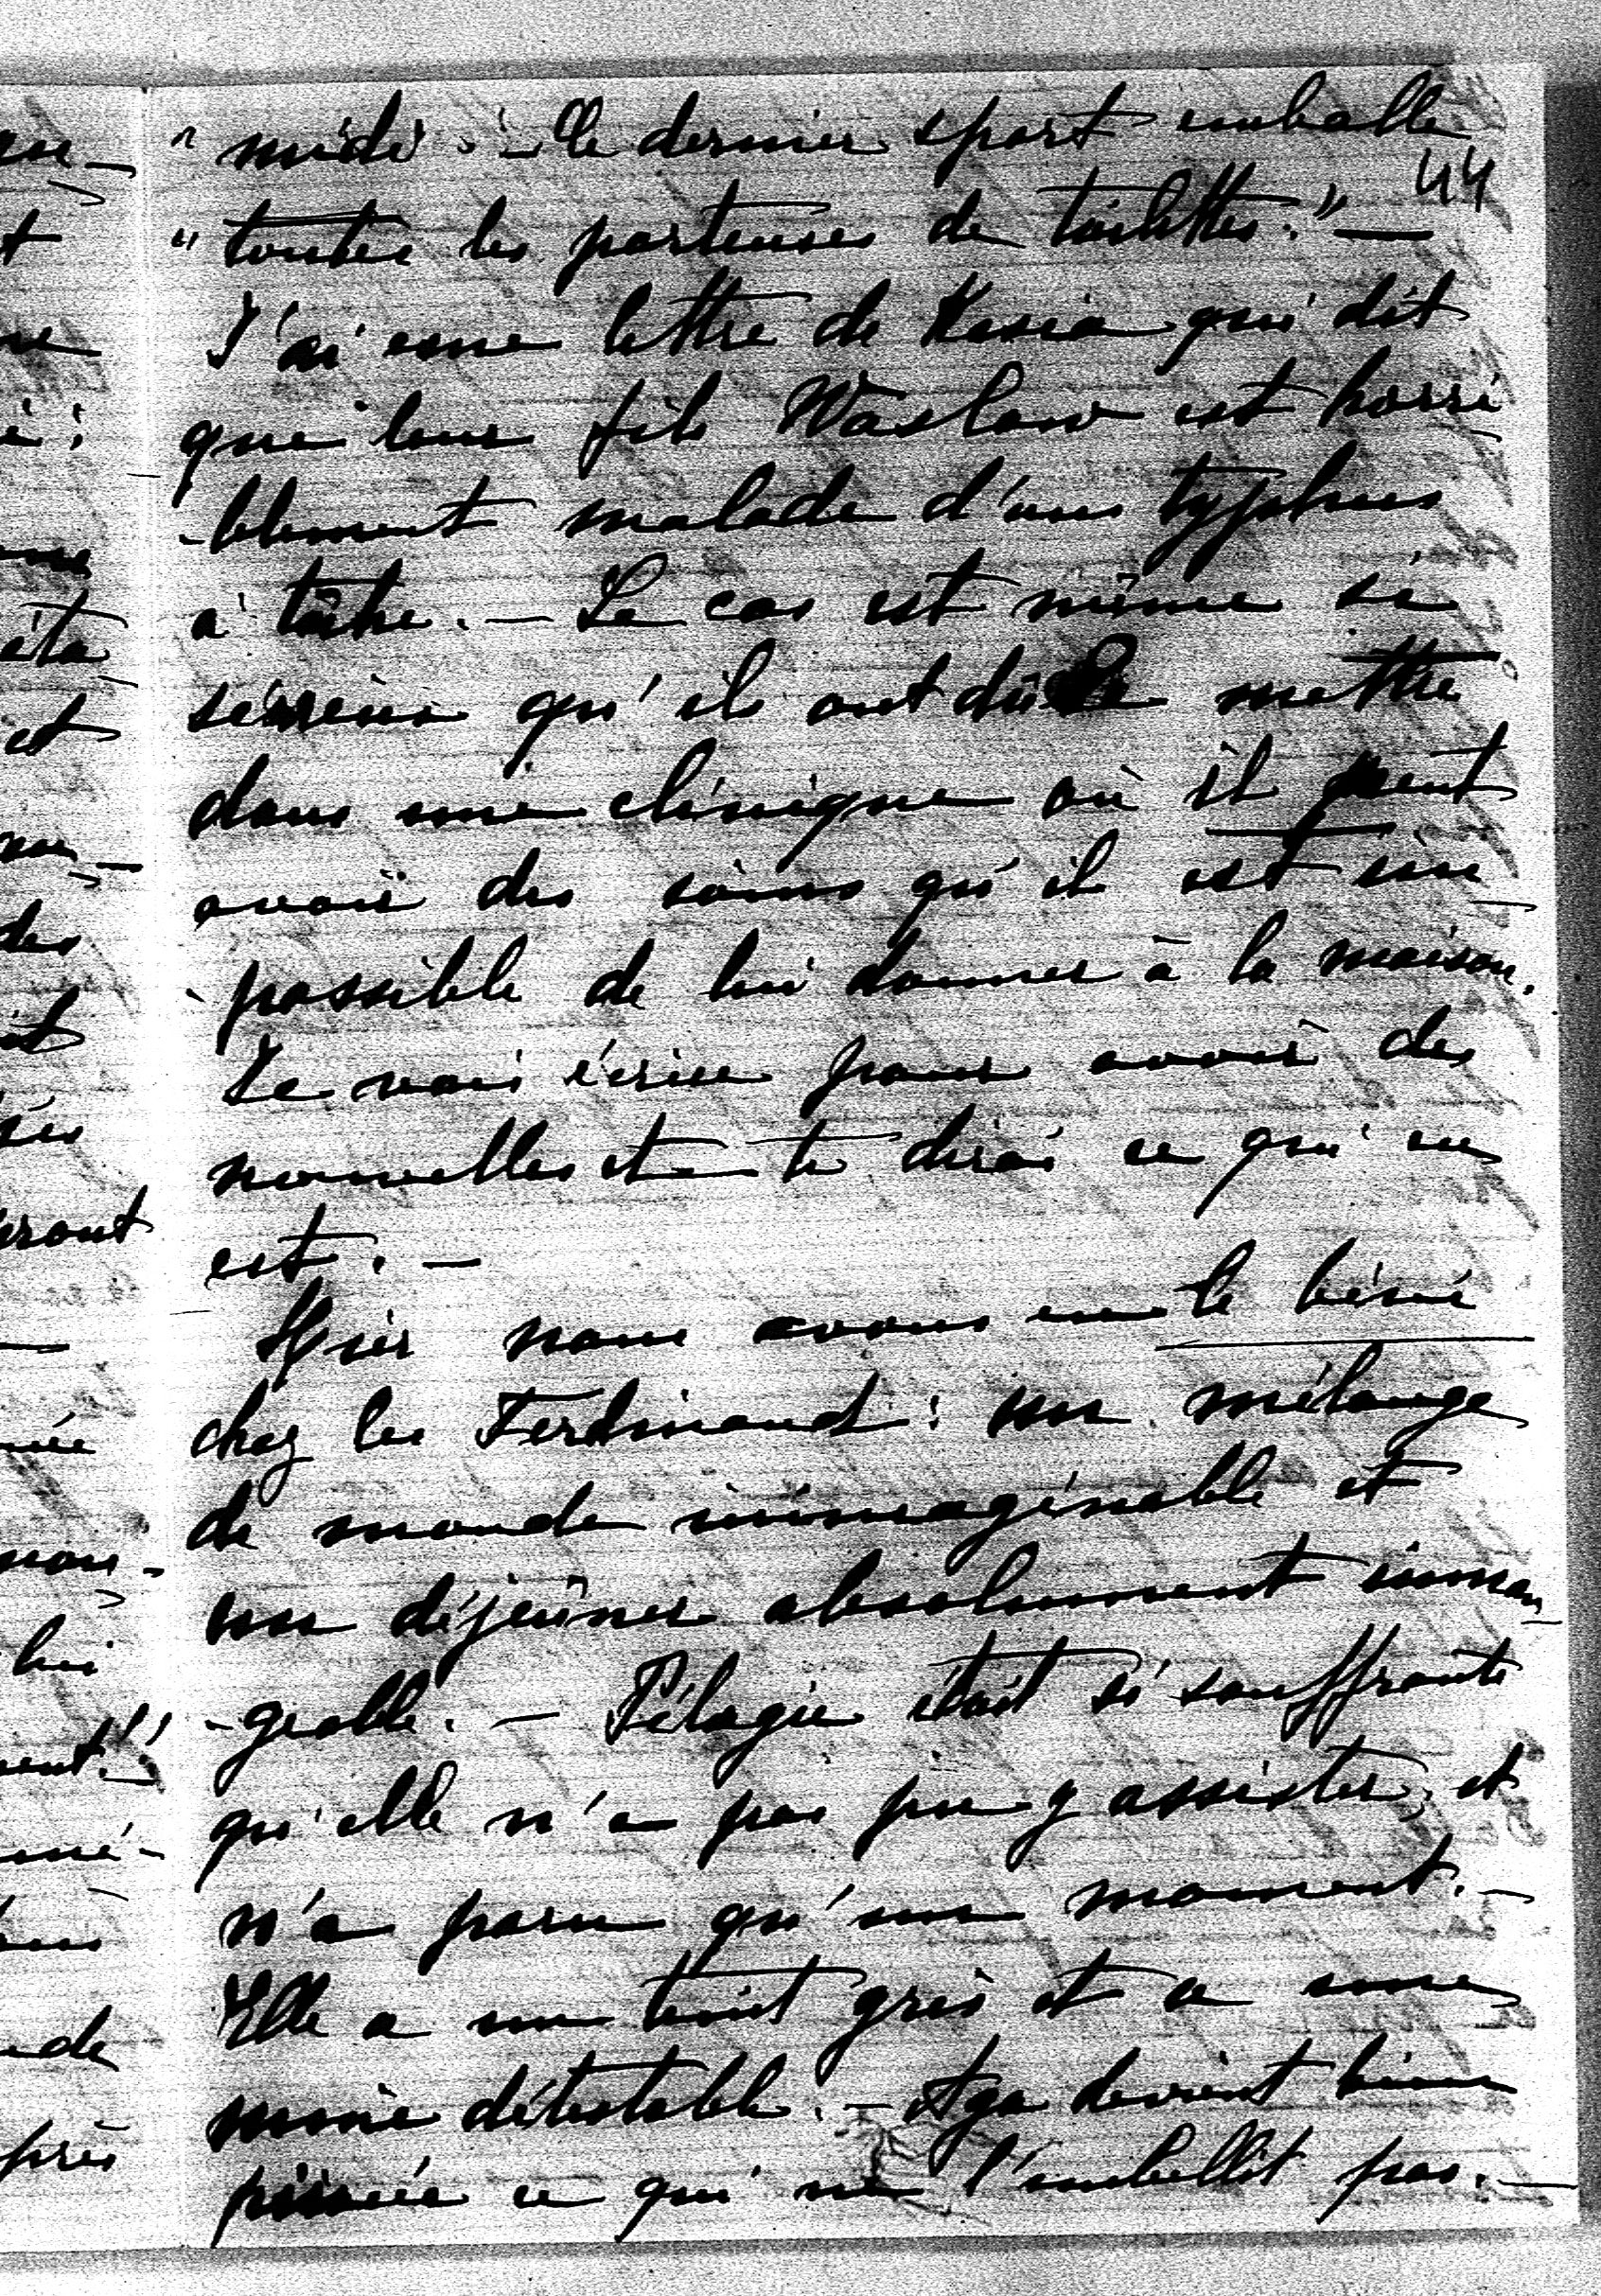 " midi. — Ce dernier sport emballe
44
" toutes les porteuses de toilettes." —
J'ai une lettre de Kasia qui dit
que leur fils Waslaw est horri
-blement malade d'un typhus
à tâche. — Le cas est même si
sérieux qu'ils ont dû le mettre
dans une clinique où il peut
avoir des soins qu'il est im
possible de lui donner à la maison.
Je vais écrire pour avoir des
nouvelles et te dirai ce qui en
est. —
Hier nous avons eu le béni
chez les Ferdinand: un mélange
de monde inimaginable et
un déjeûner absolument iman
-geable. — Pélagie était si souffrante
qu'elle n'a pas pu y assister, et
n'a paru qu'un moment. —
Elle a un teint gris et a une
mine détestable. — Aga devient bien
ce qui ne l'embellit pas. —